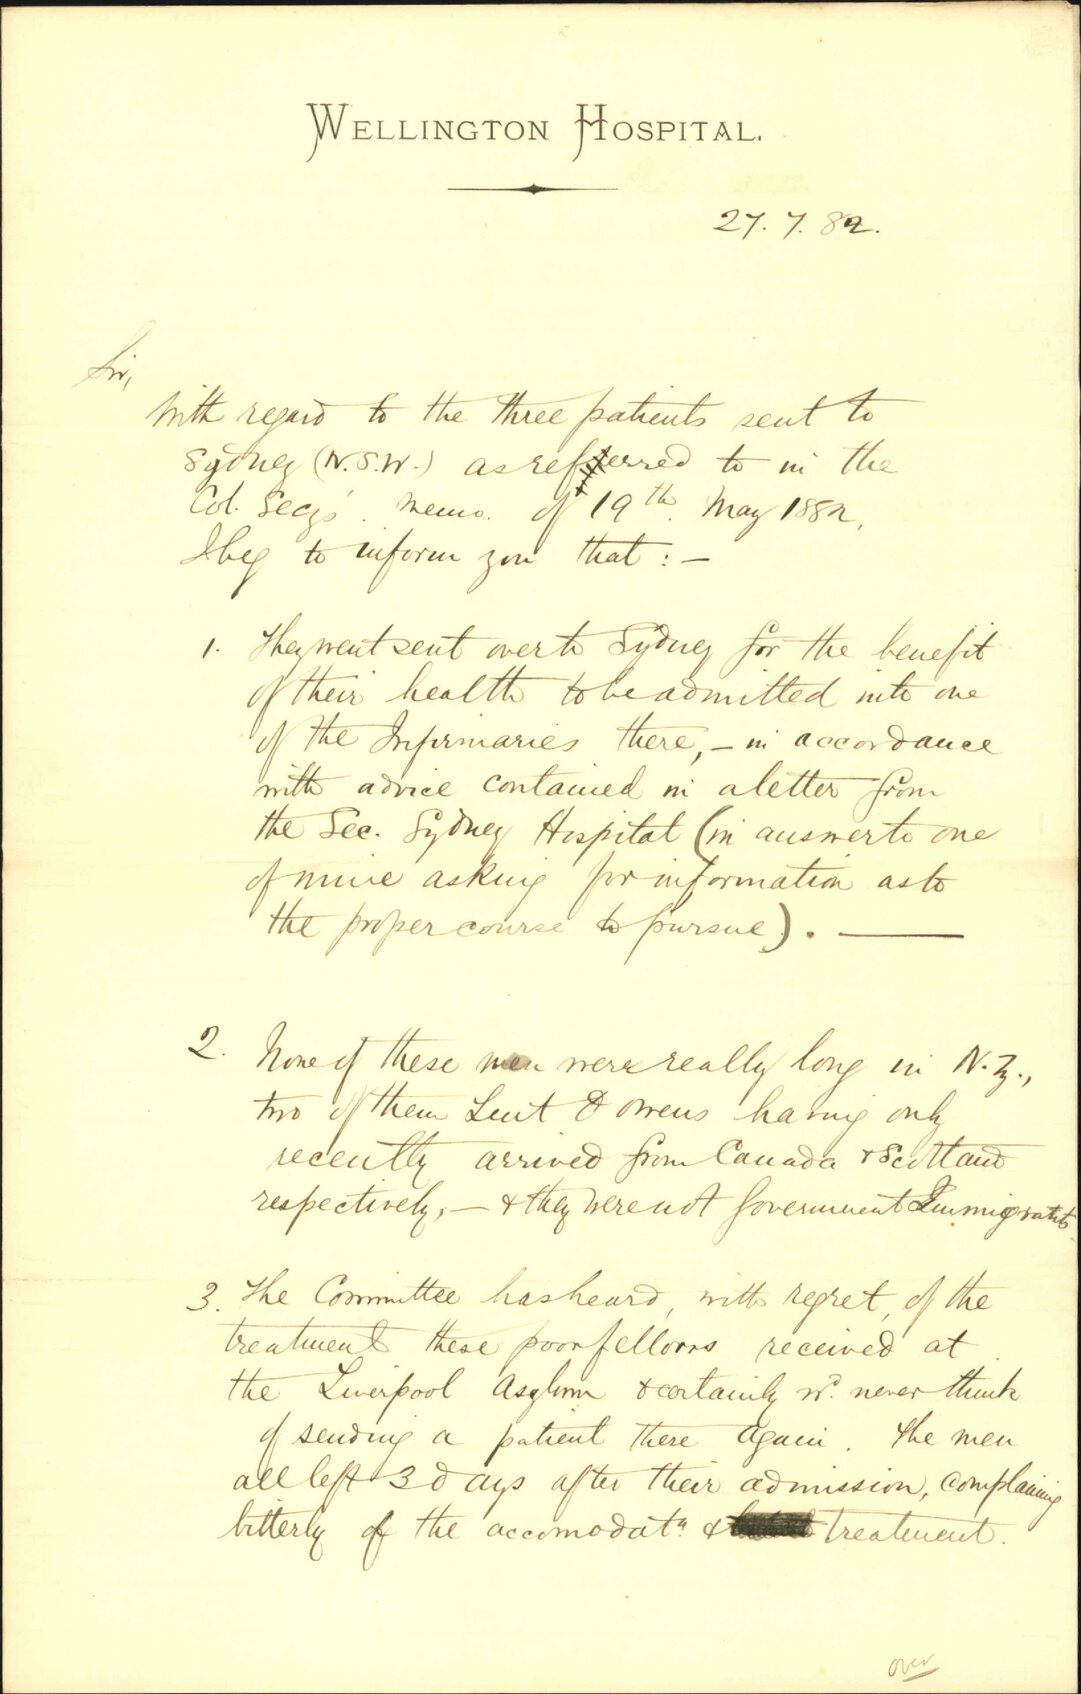 WELLINGTON HOSPITAL.
27. 7. 82.
Sir,
With regard to the three patients sent to
Sydney (N.S.W.) as referred to in the
Col. Secys'. memo. of 19th. May 1882,
I beg to inform you that : —
1. They went sent over to Sydney for the benefit
of their health to be admitted into one
of the Infirmaries there, – in accordance
with advice contained in a letter from
the Sec. Sydney Hospital (in answer to one
of mine asking for information as to
the proper course to pursue). —
2. None of these men were really long in N.Z.,
two of them Lent & Owens having only
recently arrived from Canada & Scotland
respectively, — & they were not Government Immigrants
3. The Committee has heard, with regret, of the
treatment these poor fellows received at
the Liverpool Asylum & certainly wd. never think
of sending a patient there again. The men
all left 3 days after their admission, complaining
bitterly of the accomodatn & treatment.
over